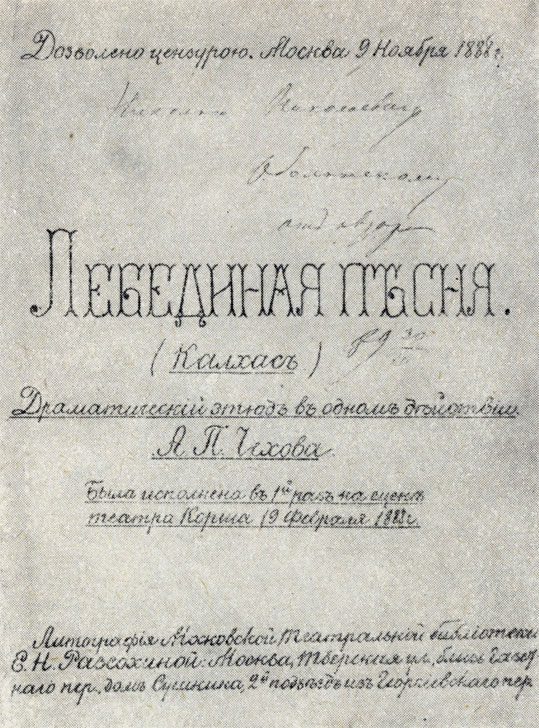 Дозволено цензурою. Москва 9 Ноября 1888 г.
Оболенскому
отъ автора
ЛЕБЕДИНАЯ ПѢСНЯ.
89
(Калхасъ)
Драматическій этюдъ въ одномъ дѣйствіи
А. П. Чехова.
Была исполнена въ 1й разъ на сценѣ
театра Корша 19 Февраля 1888 г.
Литографія Московской Театральной библіотеки
Е. Н. Разсохиной. Москва, Тверская ул, близъ Газет-
наго пер., домъ Сушкина, 2й подъѣздъ изъ Георгіевскаго пер.